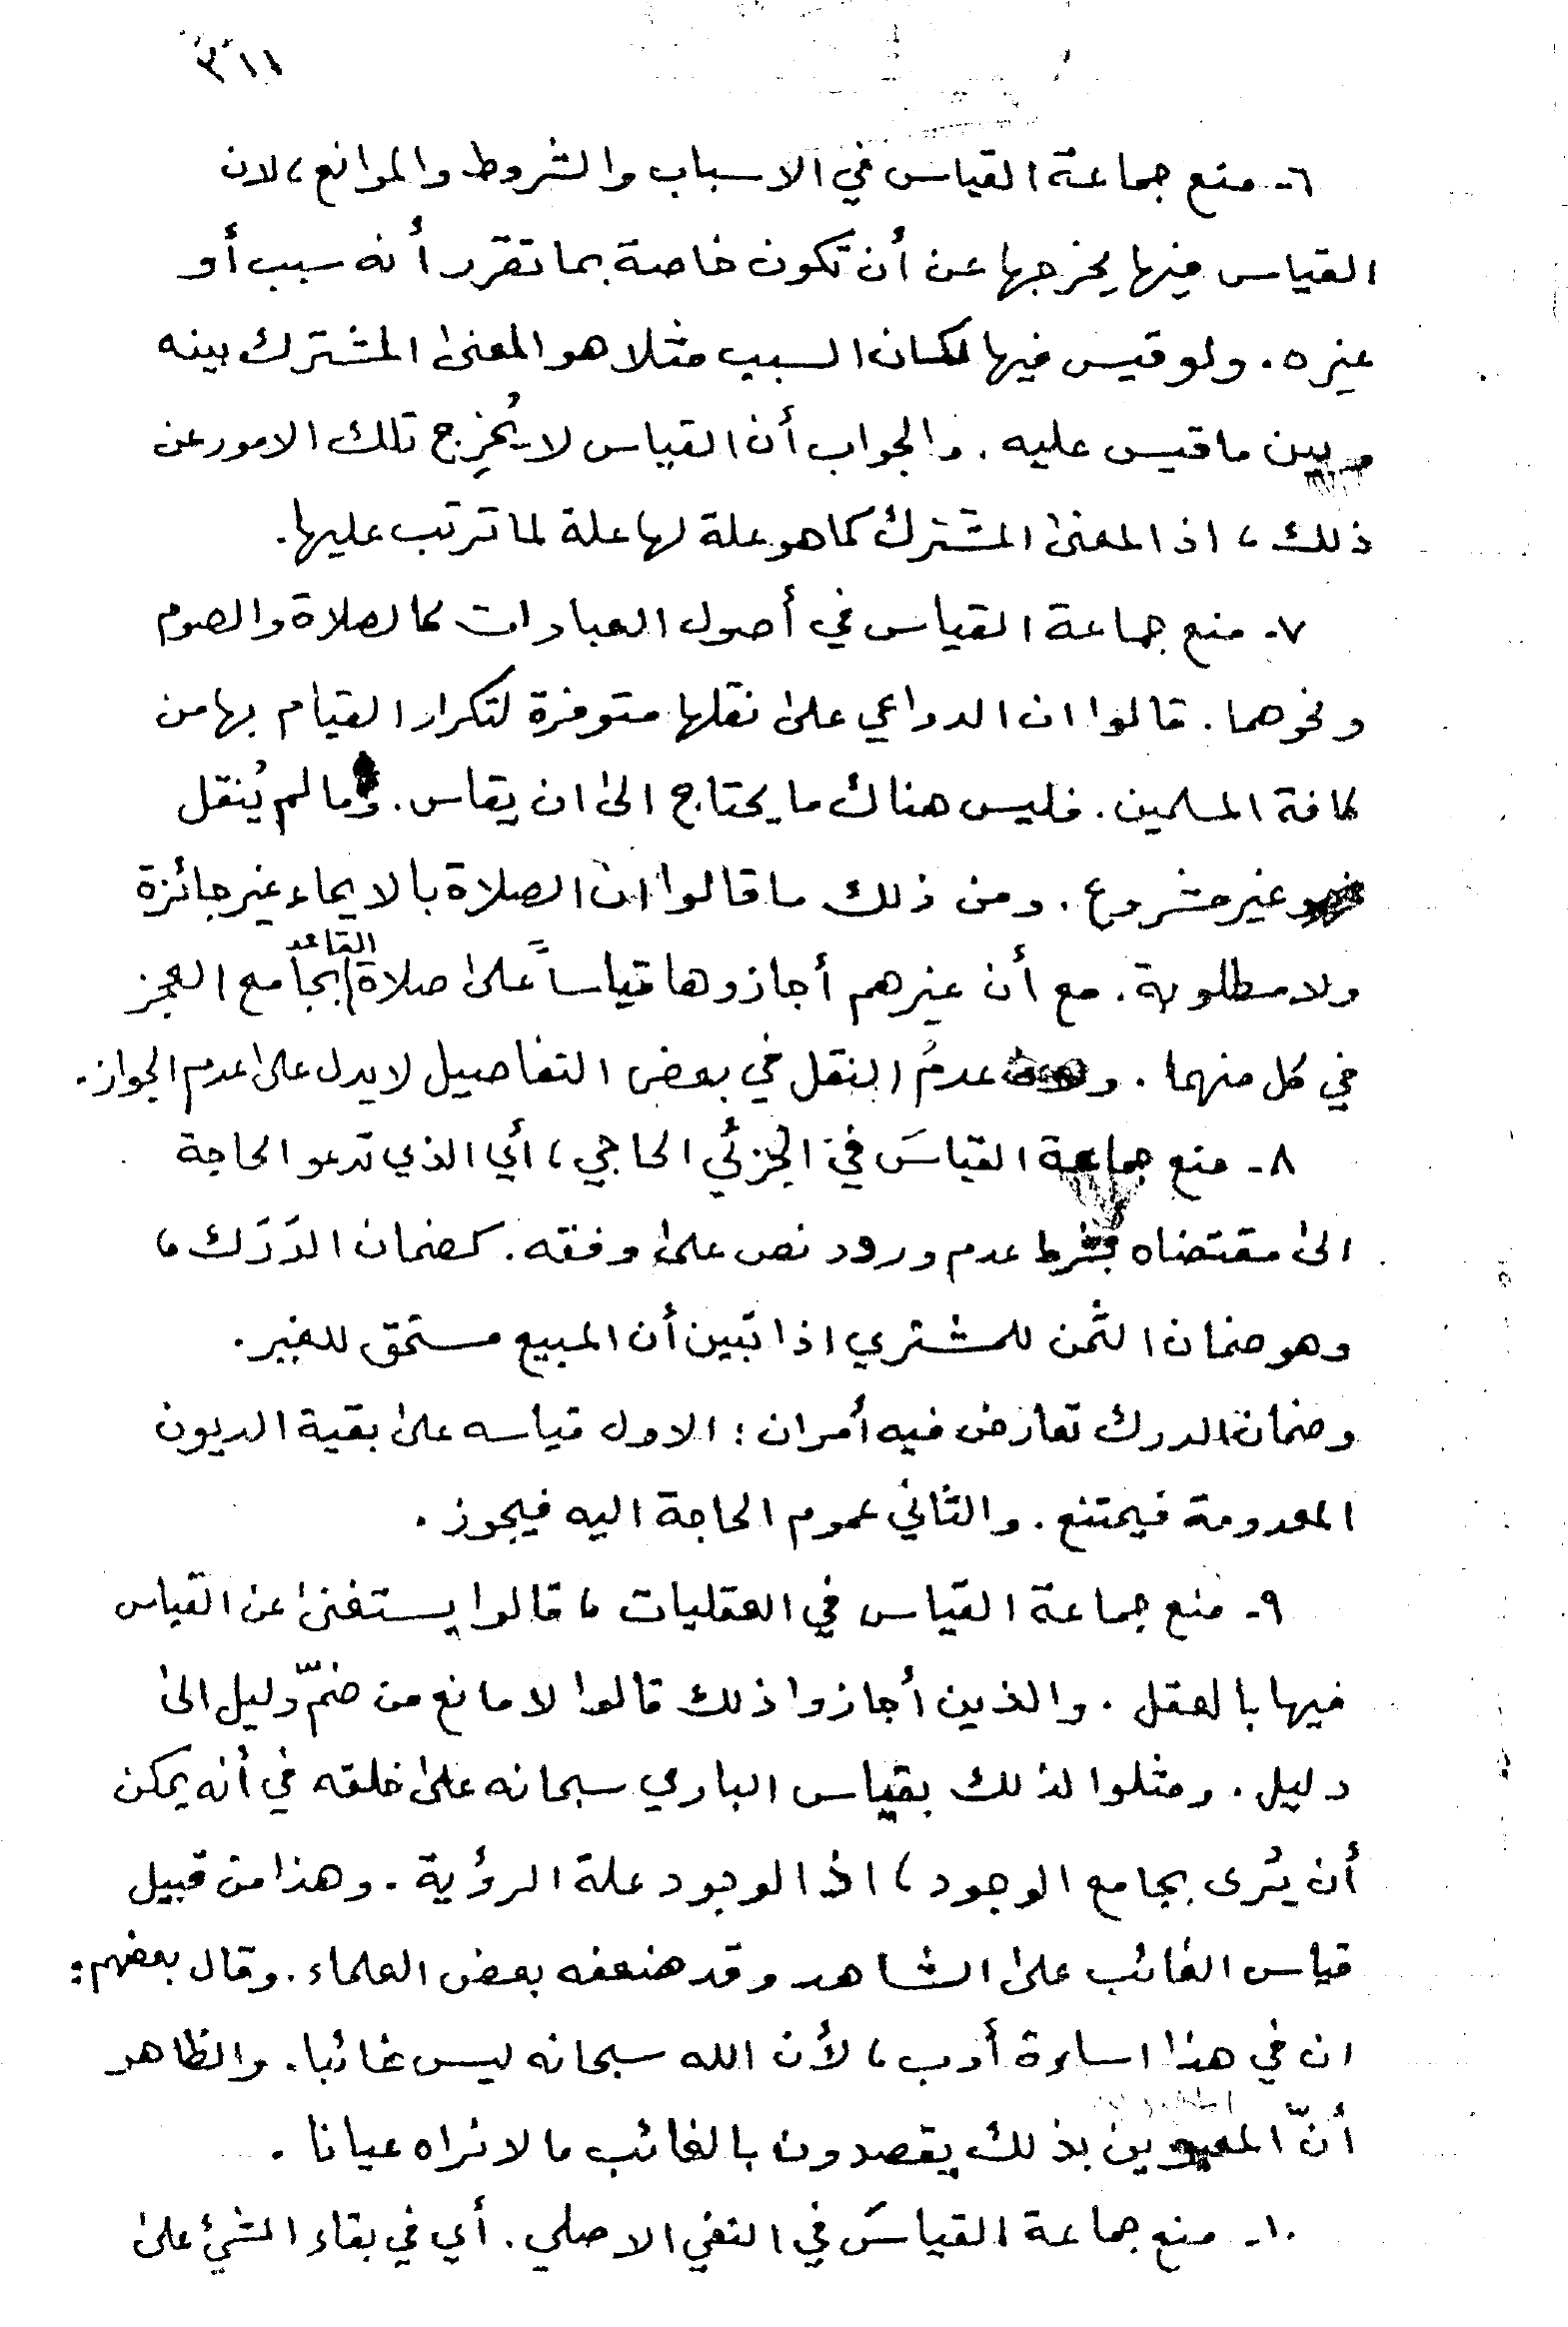 ٣١١
٦- منع جماعة القياس في الاسباب والشروط والموانع، لان
القياس فيها يخرجها عن أن تكون خاصة بما تقرر أنه سبب أو
غيره. ولو قيس فيها لكان السبب مثلا هو المعنى المشترك بينه
وبين ما قيس عليه. والجواب أن القياس لا يُخرِج تلك الامور عن
ذلك، اذ المعنى المشترك كما هو علة لها علة لما ترتب عليها.
٧- منع جماعة القياس في أصول العبادات كالصلاة والصوم
ونحوهما. قالوا ان الدواعي على نقلها متوفرة لتكرار القيام بها من
كافة المسلمين. فليس هناك ما يحتاج الى ان يقاس. وما لم يُنقل
فهو غير مشروع. ومن ذلك ما قالوا ان الصلاة بالايماء غير جائزة
ولا مطلوبة. مع أن غيرهم أجازوها قياساً على صلاة القاعد بجامع العجز
في كل منهما. و عدمُ النقل في بعض التفاصيل لا يدل على عدم الجواز.
٨- منع جماعة القياسَ في الجزئي الحاجي، أي الذي تدعو الحاجة
الى مقتضاه بشرط عدم ورود نص على وفقه. كضمان الدَرَك،
وهو ضمان الثمن للمشتري اذا تبين أن المبيع مستحق للغير.
وضمان الدرك تعارض فيه أمران: الاول قياسه على بقية الديون
المعدومة فيمتنع. والثاني عموم الحاجة اليه فيجوز.
٩- منع جماعة القياس في العقليات، قالوا يستغنى عن القياس
فيها بالعقل. والذين أجازوا ذلك قالوا لا مانع من ضمّ دليل الى
دليل. ومثلوا لذلك بقياس الباري سبحانه على خلقه في أنه يمكن
أن يُرى بجامع الوجود، اذ الوجود علة الرؤية. وهذا من قبيل
قياس الغائب على الشاهد وقد ضعفه بعض العلماء. وقال بعضهم:
ان في هذا اساءة أدب، لأن الله سبحانه ليس غائبا. والظاهر
أنّ المعبرين بذلك يقصدون بالغائب ما لا نراه عيانا.
١٠- منع جماعة القياسَ في النفي الاصلي. أي في بقاء الشيء على